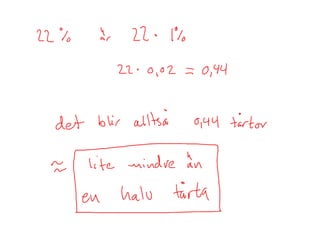 22 % är 22 · 1%
22 · 0,02 = 0,44
det blir alltså 0,44 tårtor
≈ lite mindre än
en halv tårta